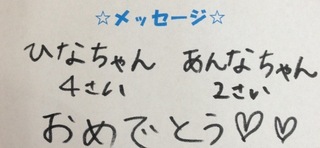 ☆メッセージ☆
ひなちゃん　あんなちゃん
4さい　2さい
おめでとう♡♡